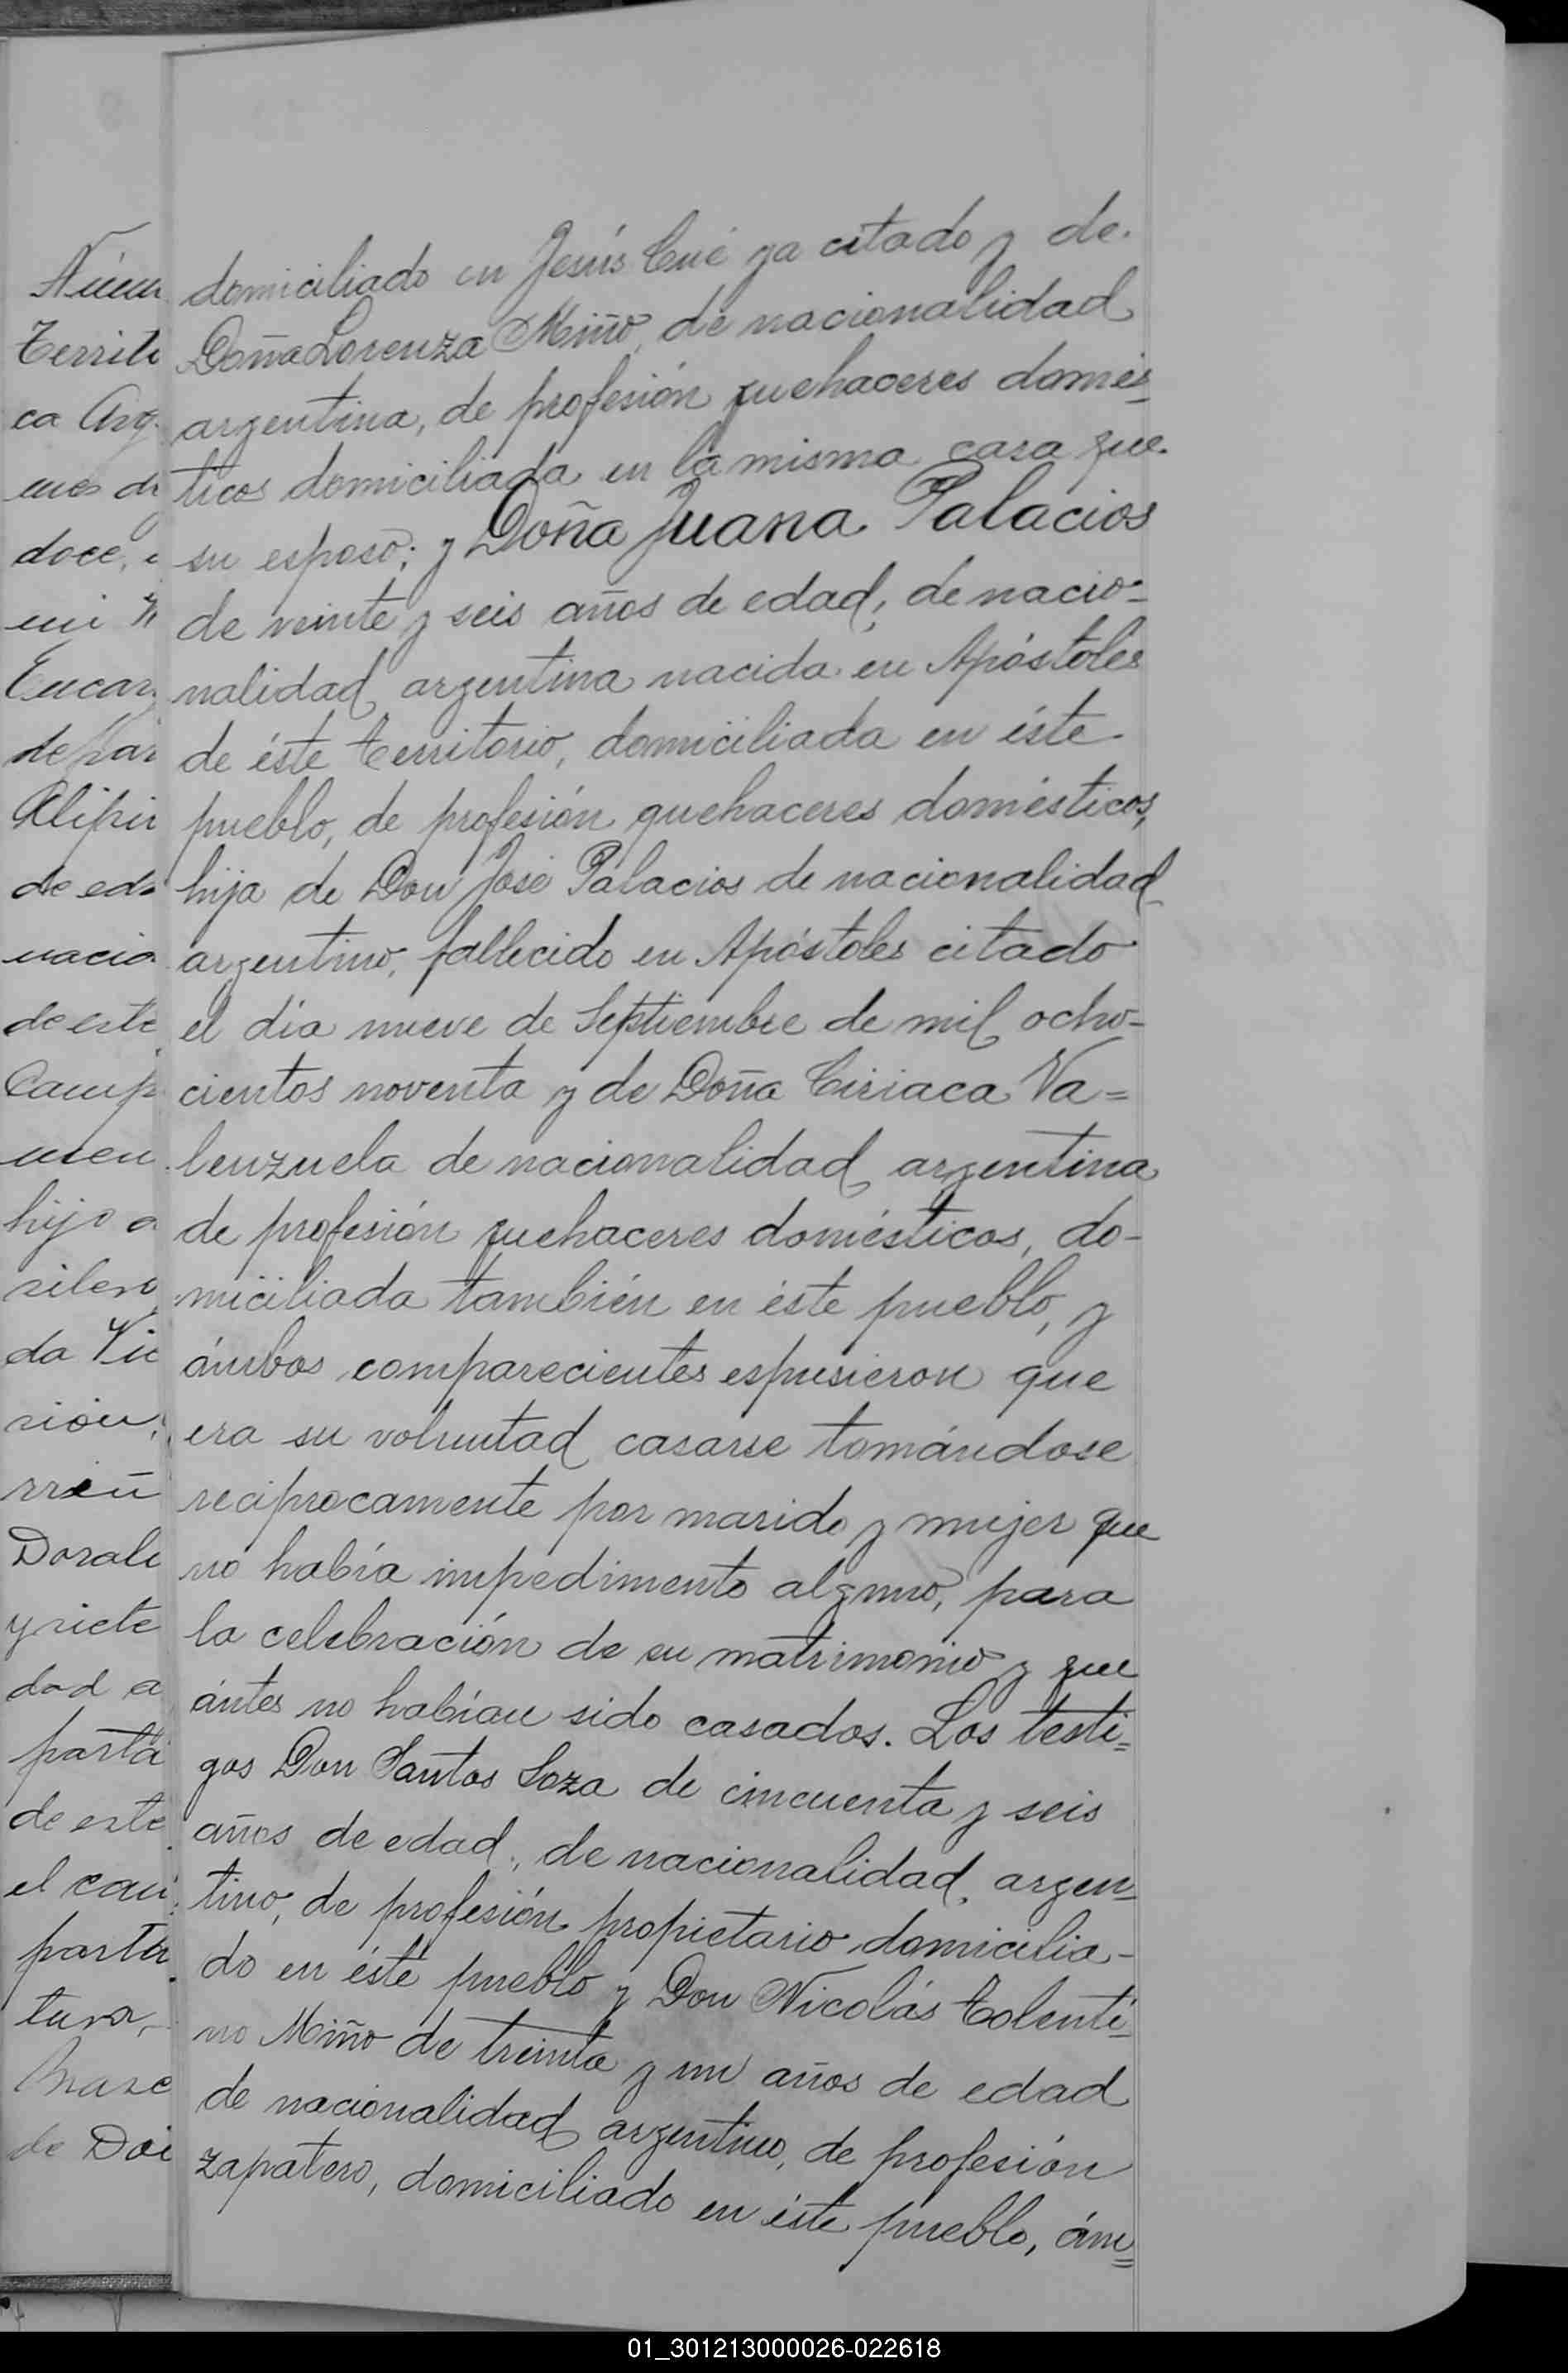 domiciliado en Jesús Cué ya citado y de
Doña Lorenza Miño, de nacionalidad
argentina, de profesión quehaceres domés-
ticos domiciliada en la misma casa que
su esposo; y Doña Juana Palacios
de veinte y seis años de edad, de nacio-
nalidad argentina nacida en Apóstoles
de éste territorio, domiciliada en éste
pueblo, de profesión quehaceres domésticos,
hija de Don José Palacios de nacionalidad
argentino, fallecido en Apóstoles citado
el día nueve de Septiembre de mil ocho-
cientos noventa y de Doña Ciriaca Va=
lenzuela de nacionalidad argentina
de profesión quehaceres domésticos, do-
miciliada también en éste pueblo, y
ámbos comparecientes espusieron que
era su voluntad casarse tomándose
reciprocamente por marido y mujer que
no había impedimento alguno, para
la celebración de su matrimonio y que
ántes no habían sido casados. Los testi=
gos Don Santos Soza de cincuenta y seis
años de edad, de nacionalidad, argen-
tino, de profesión propietario domicilia-
do en éste pueblo y Don Nicolás Tolenti-
no Miño de treinta y un años de edad
de nacionalidad argentino, de profesión
zapatero, domiciliado en éste pueblo, ám=
Territ
ca Arg
doce,
Encar
de par
Alipi
de eda
nacio
de este
Camp
hijo
da Vic
sión,
y siete
dad a
parta
de este
parta
tura,
de Do
01_301213000026-022618